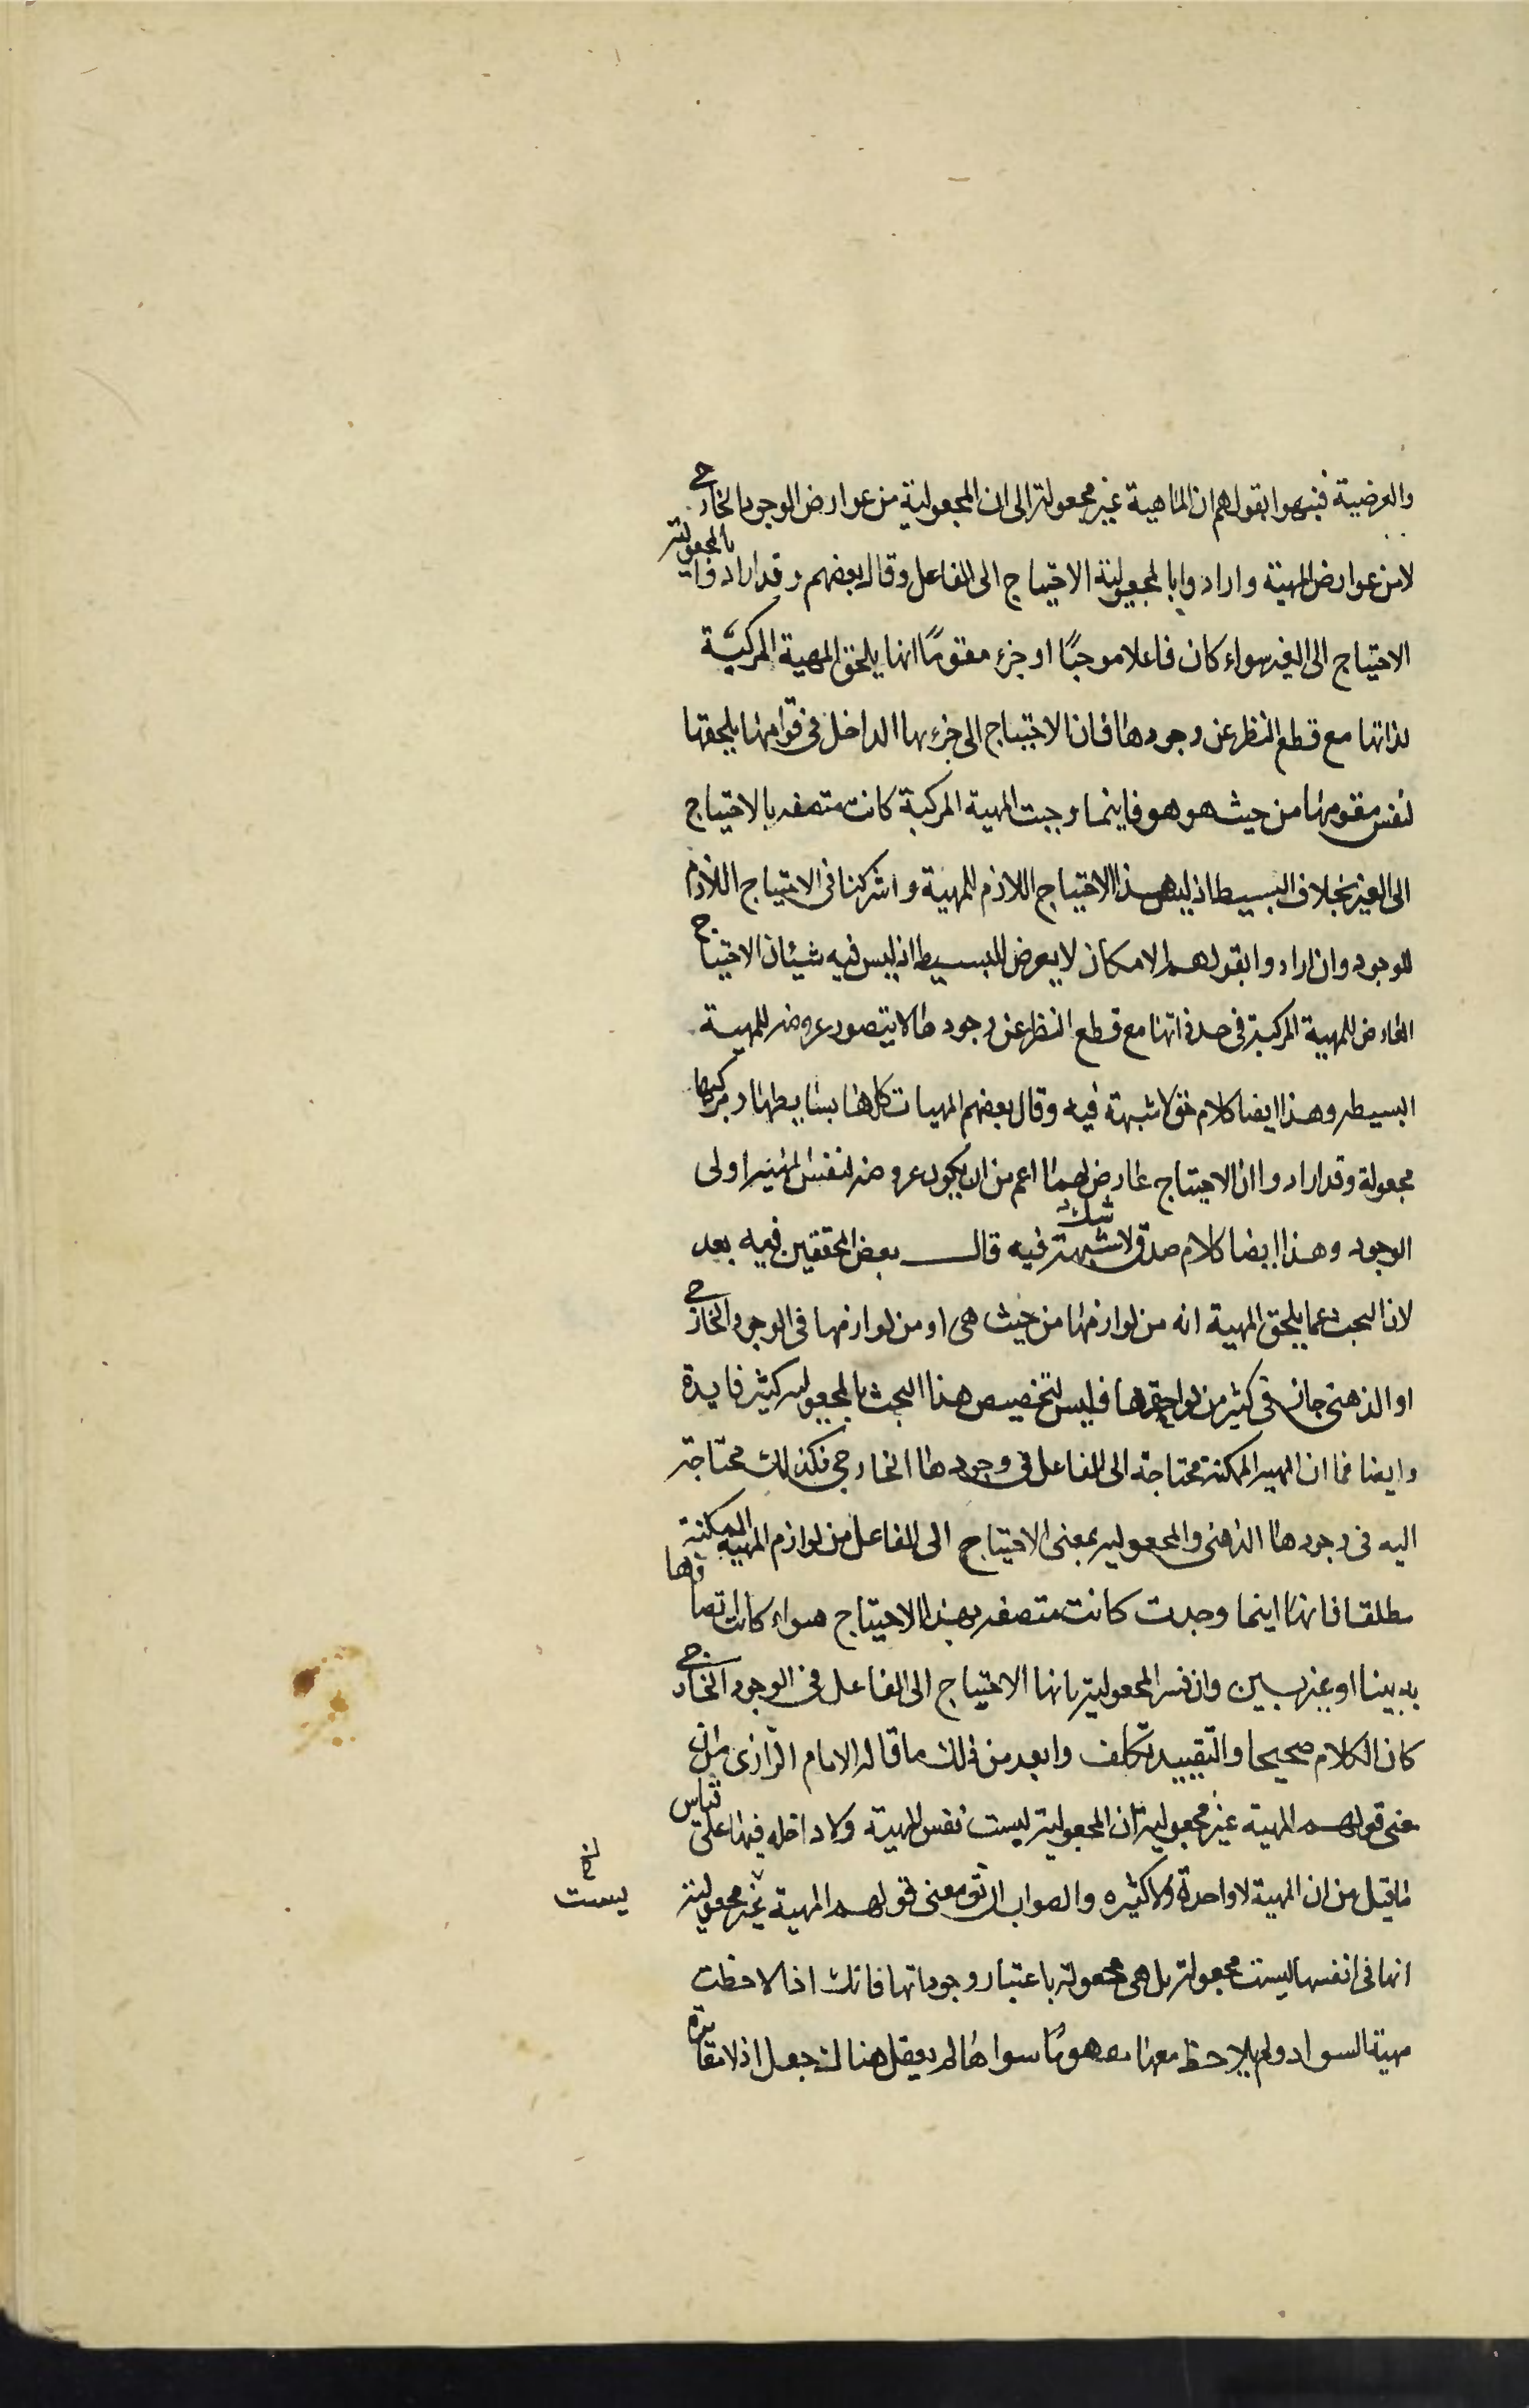 والعرضية فنبهوا بقولهم ان الماهية غير مجعولة الى ان المجعولية من عوارض الوجود الخارجى
لا من عوارض المهية وارادوا بالمجعولية الاحتياج الى الفاعل وقال بعضهم وقد ارادوا بالمجعولية
الاحتياج الى الغير سواء كان فاعلا موجبًا او جزء مقومًا انها يلحق المهية المركبة
لذاتها مع قطع النظر عن وجودها فان الاحتياج الى جزءها الداخل فى قوامها يلحقها
لنفس مقومها من حيث هو هو فاينما وجبت المهية المركبة كانت متصفه بالاحتياج
الى الغير بخلاف البسيط اذ ليس هذا الاحتياج اللازم للمهية واشتركتا فى الاحتياج اللازم
للوجود وان ارادوا بقولهم الامكان لا يعرض للبسيط اذ ليس فيه شيئان الاحتياج
العارض للمهية المركبة فى حد ذاتها مع قطع النظر عن وجودها لا يتصور عروضه للمهية
البسيطه وهذا ايضا كلام حق لا شبهة فيه وقال بعضهم المهيات كلها بسايطها ومركبها
مجعولة وقد ارادوا ان الاحتياج عارض لهما اعم من ان يكون عروضه لنفس المهية او لى
الوجود وهذا ايضا كلام صدق لا شبهة شك فيه قال بعض المحققين فيه بعد
لان البحث عما يلحق المهية انه من لوازمها من حيث هى او من لوازمها فى الوجود الخارجى
او الذهنى جار فى كثير من لواحقها فليس لتخصيص هذا البحث بالمجعوليه كثير فايدة
وايضا فما ان المهية الممكنة محتاجة الى الفاعل فى وجودها الخارجى فكذلك محتاجة
اليه فى وجودها الذهنى والمجعوليه بمعنى الاحتياج الى الفاعل من لوازم المهية الممكنة
مطلقا فانها اينما وجدت كانت متصفه بهذا الاحتياج سواء كان اتصافها
به بينا او غير بين وان فسر المجعولية بانها الاحتياج الى الفاعل فى الوجود الخارجى
كان الكلام صحيحا والتقييد تكلف وابعد من ذلك ما قاله الامام الرازى من ان
معنى قولهم المهية غير مجعولية ان المجعولية ليست نفس المهية ولا داخله فيها على قياس
ما قيل من ان المهية لا واحدة ولا كثيره والصواب ان يق معنى قولهم المهية غير مجعولية
ليست
انها فى انفسها ليست مجعولة بل هى مجعوله باعتبار وجوداتها فانك اذا لاحظت
مهية السواد ولم يلاحظ معها مفهومًا سواها لم يعقل هناك جعل اذ لا مغايرة